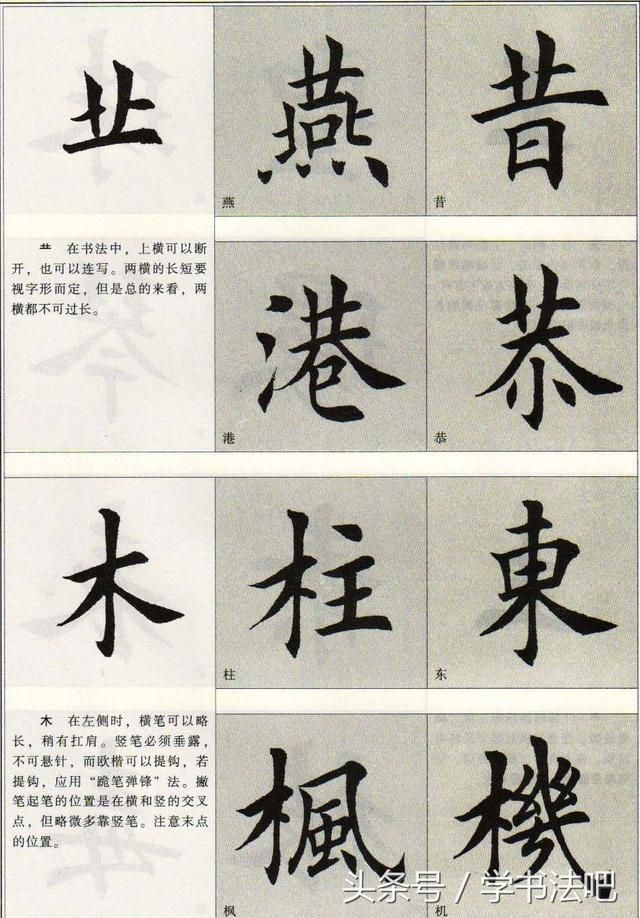 龷
燕
昔
燕
昔
龷 在书法中，上横可以断
开，也可以连写。两横的长短要
视字形而定，但是总的来看，两
横都不可过长。
港
恭
港
恭
木
柱
東
柱
东
木 在左侧时，横笔可以略
长，稍有扛肩。竖笔必须垂露，
不可悬针，而欧楷可以提钩，若
提钩，应用“跪笔弹锋”法。撇
笔起笔的位置是在横和竖的交叉
点，但略微多靠竖笔。注意末点
的位置。
楓
機
枫
机
头条号 / 学书法吧